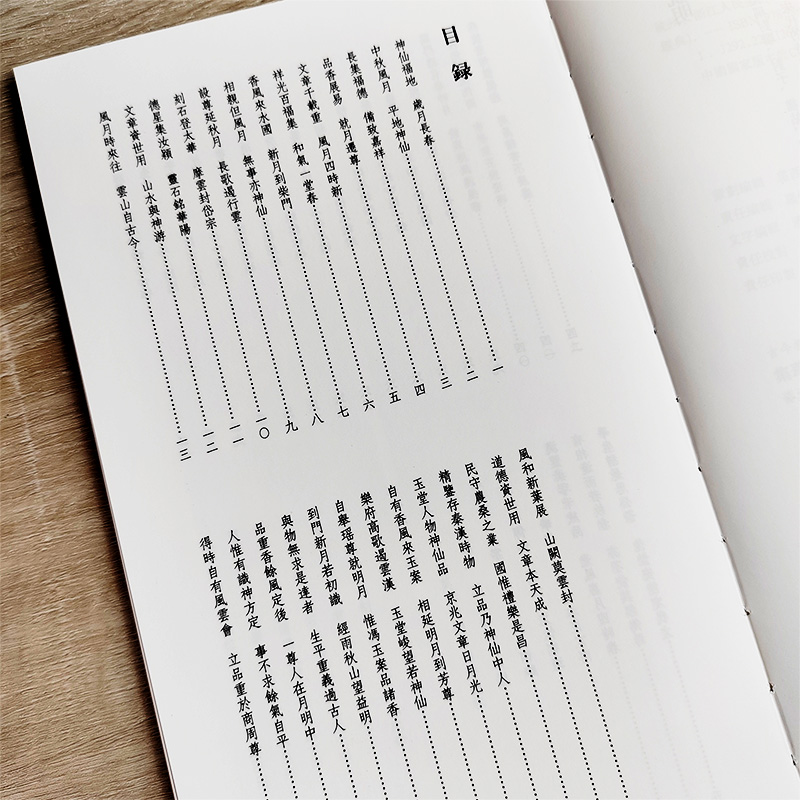 目錄
神仙福地 歲月長春 一
中秋風月 平地神仙 二
長集福德 備致嘉祥 三
品香展易 就月還尊 四
文章千載重 風月四時新 五
祥光百福集 和氣一堂春 六
香風來水國 新月到柴門 七
相親但風月 無事亦神仙 八
設尊延秋月 長歌遏行雲 九
刻石登太華 摩雲封岱宗 一〇
德星集汝潁 靈石銘華陽 一一
文章資世用 山水與神游 一二
風月時來往 雲山自古今 一三
風和新葉展 山闕莫雲封
道德資世用 文章本天成
民守農桑之業 國惟禮樂是昌
精鑒存秦漢時物 立品乃神仙中人
玉堂人物神仙品 京兆文章日月光
自有香風來玉案 相延明月到芳尊
樂府高歌遏雲漢 玉堂峻望若神仙
自舉瑤尊就明月 惟馮玉案品諸香
到門新月若初識 經雨秋山望益明
與物無求是達者 生平重義過古人
品重香餘風定後 一尊人在月明中
人惟有識神方定 事不求餘氣自平
得時自有風雲會 立品重於商周尊